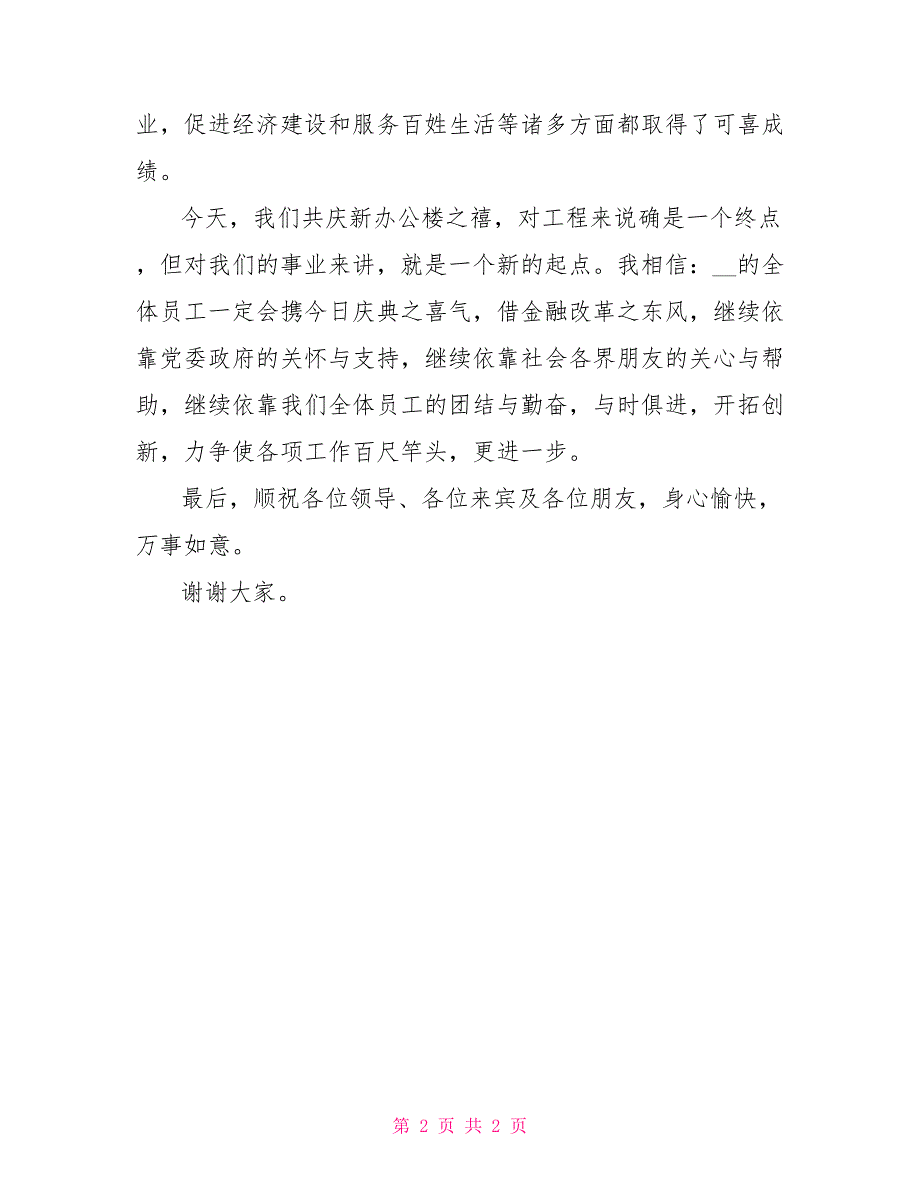 业，促进经济建设和服务百姓生活等诸多方面都取得了可喜成
绩。
今天，我们共庆新办公楼之禧，对工程来说确是一个终点
，但对我们的事业来讲，就是一个新的起点。我相信：__的全
体员工一定会携今日庆典之喜气，借金融改革之东风，继续依
靠党委政府的关怀与支持，继续依靠社会各界朋友的关心与帮
助，继续依靠我们全体员工的团结与勤奋，与时俱进，开拓创
新，力争使各项工作百尺竿头，更进一步。
最后，顺祝各位领导、各位来宾及各位朋友，身心愉快，
万事如意。
谢谢大家。
第 2 页 共 2 页